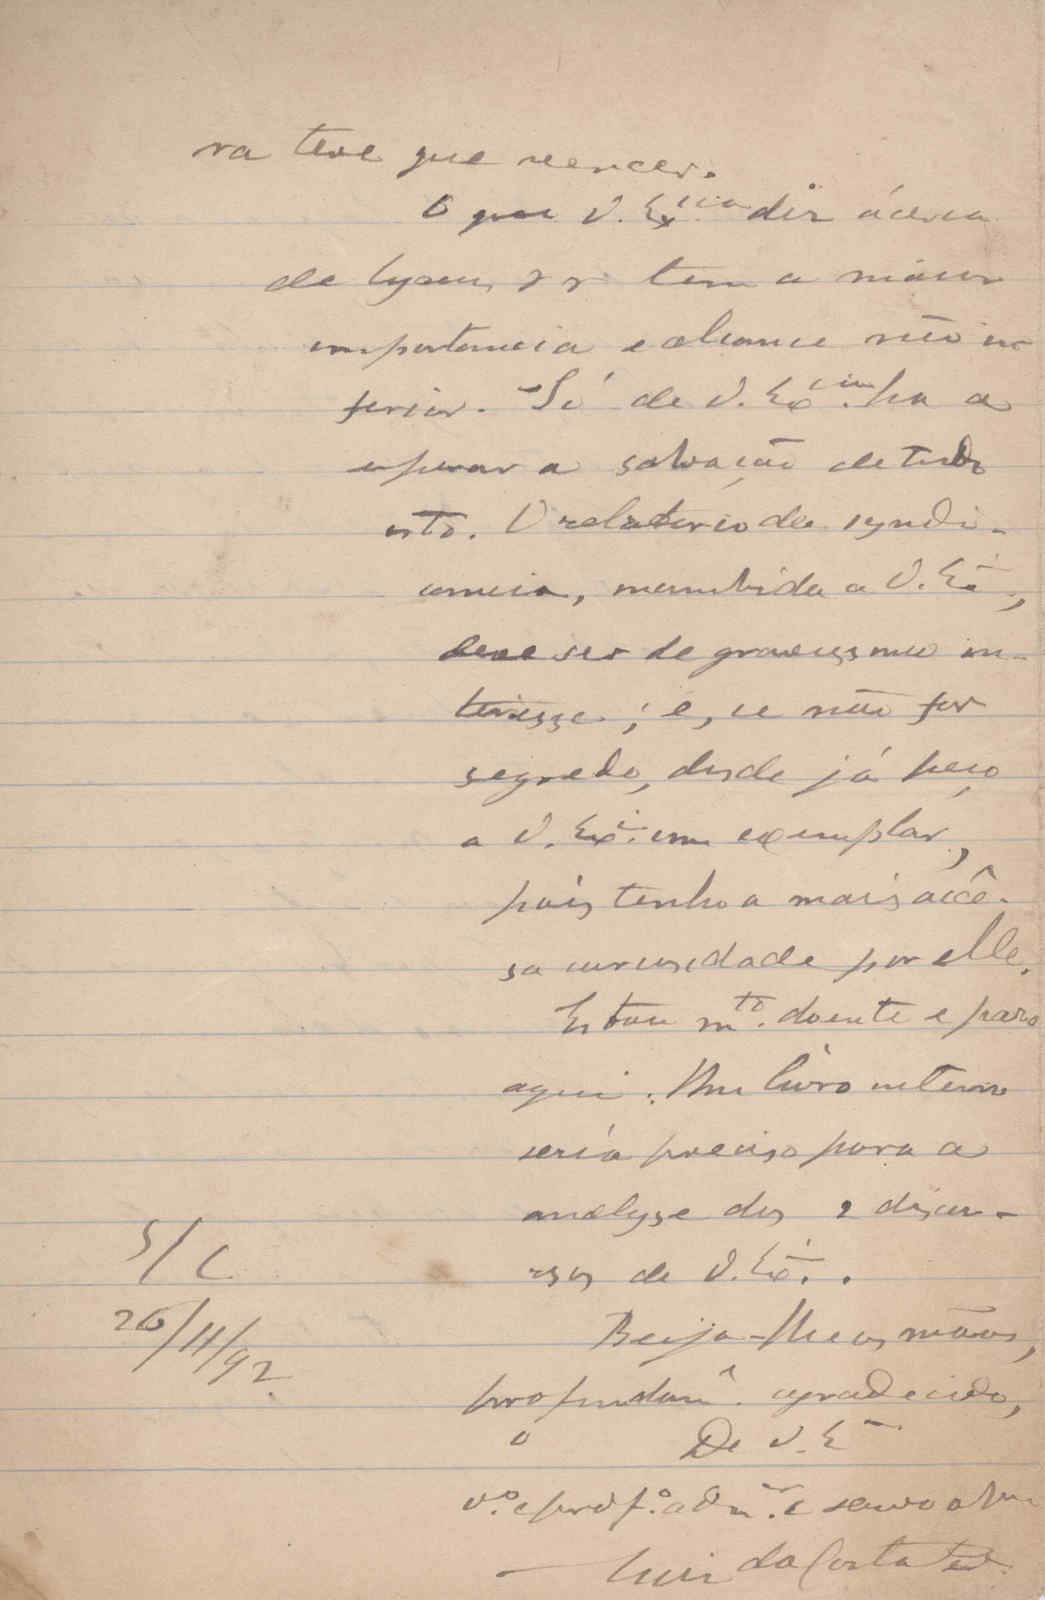 ra teve que vencer.
O que V. Ex.cia diz ácerca
de lyceus, tem a maior
importancia e alcance não in-
ferior. - Só de V. Ex.cia ha a
esperar a salvação de tudo
isto. O relatorio da syndi-
cancia, mandada a V. Ex.ª,
deve ser de gravissimo in-
teresse; e, se não for
segredo, desde já peço
a V. Ex.ª um exemplar,
pois tenho a mais accê-
sa curiosidade por elle.
Estou m.to doente e paro
aqui. Um livro inteiro
seria preciso para a
analyse dos 2 discur-
sos de V. Ex.ª.
S/C
26/11/92
Beija-lhe as mãos,
profundam.e agradecido,
O De V. E
v.º e prof.º adm.or e servo
Luiz da Costa